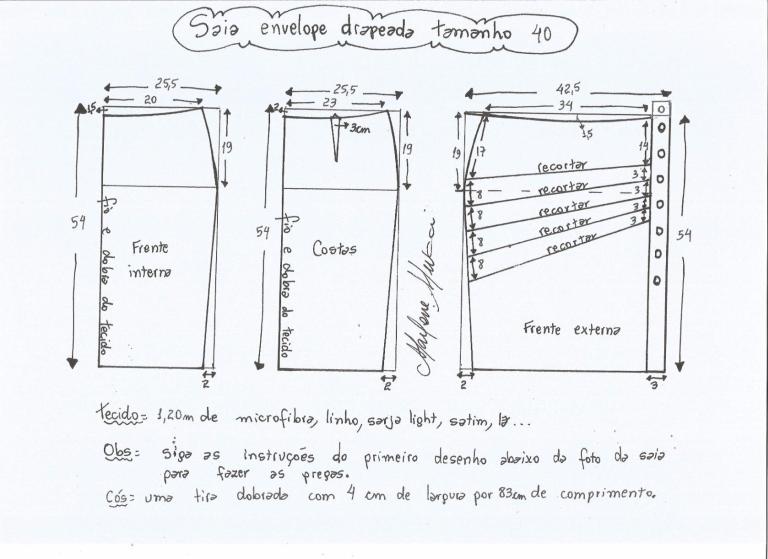 Saia envelope drapeada tamanho 40
25,5
20
1,5
19
54
fio e dobra do tecido
Frente
interna
2
25,5
23
2
3cm
19
54
fio e dobra do tecido
Costas
2
42,5
34
1,5
19
17
14
recortar
3
recortar
3
8
recortar
3
8
recortar
3
8
recortar
8
54
Frente externa
2
3
Tecido = 1,20m de microfibra, linho, sarja light, satim, lã...
Obs = Siga as instruções do primeiro desenho abaixo da foto da saia
para fazer as pregas.
Cós = uma tira dobrada com 4 cm de largura por 83cm de comprimento.